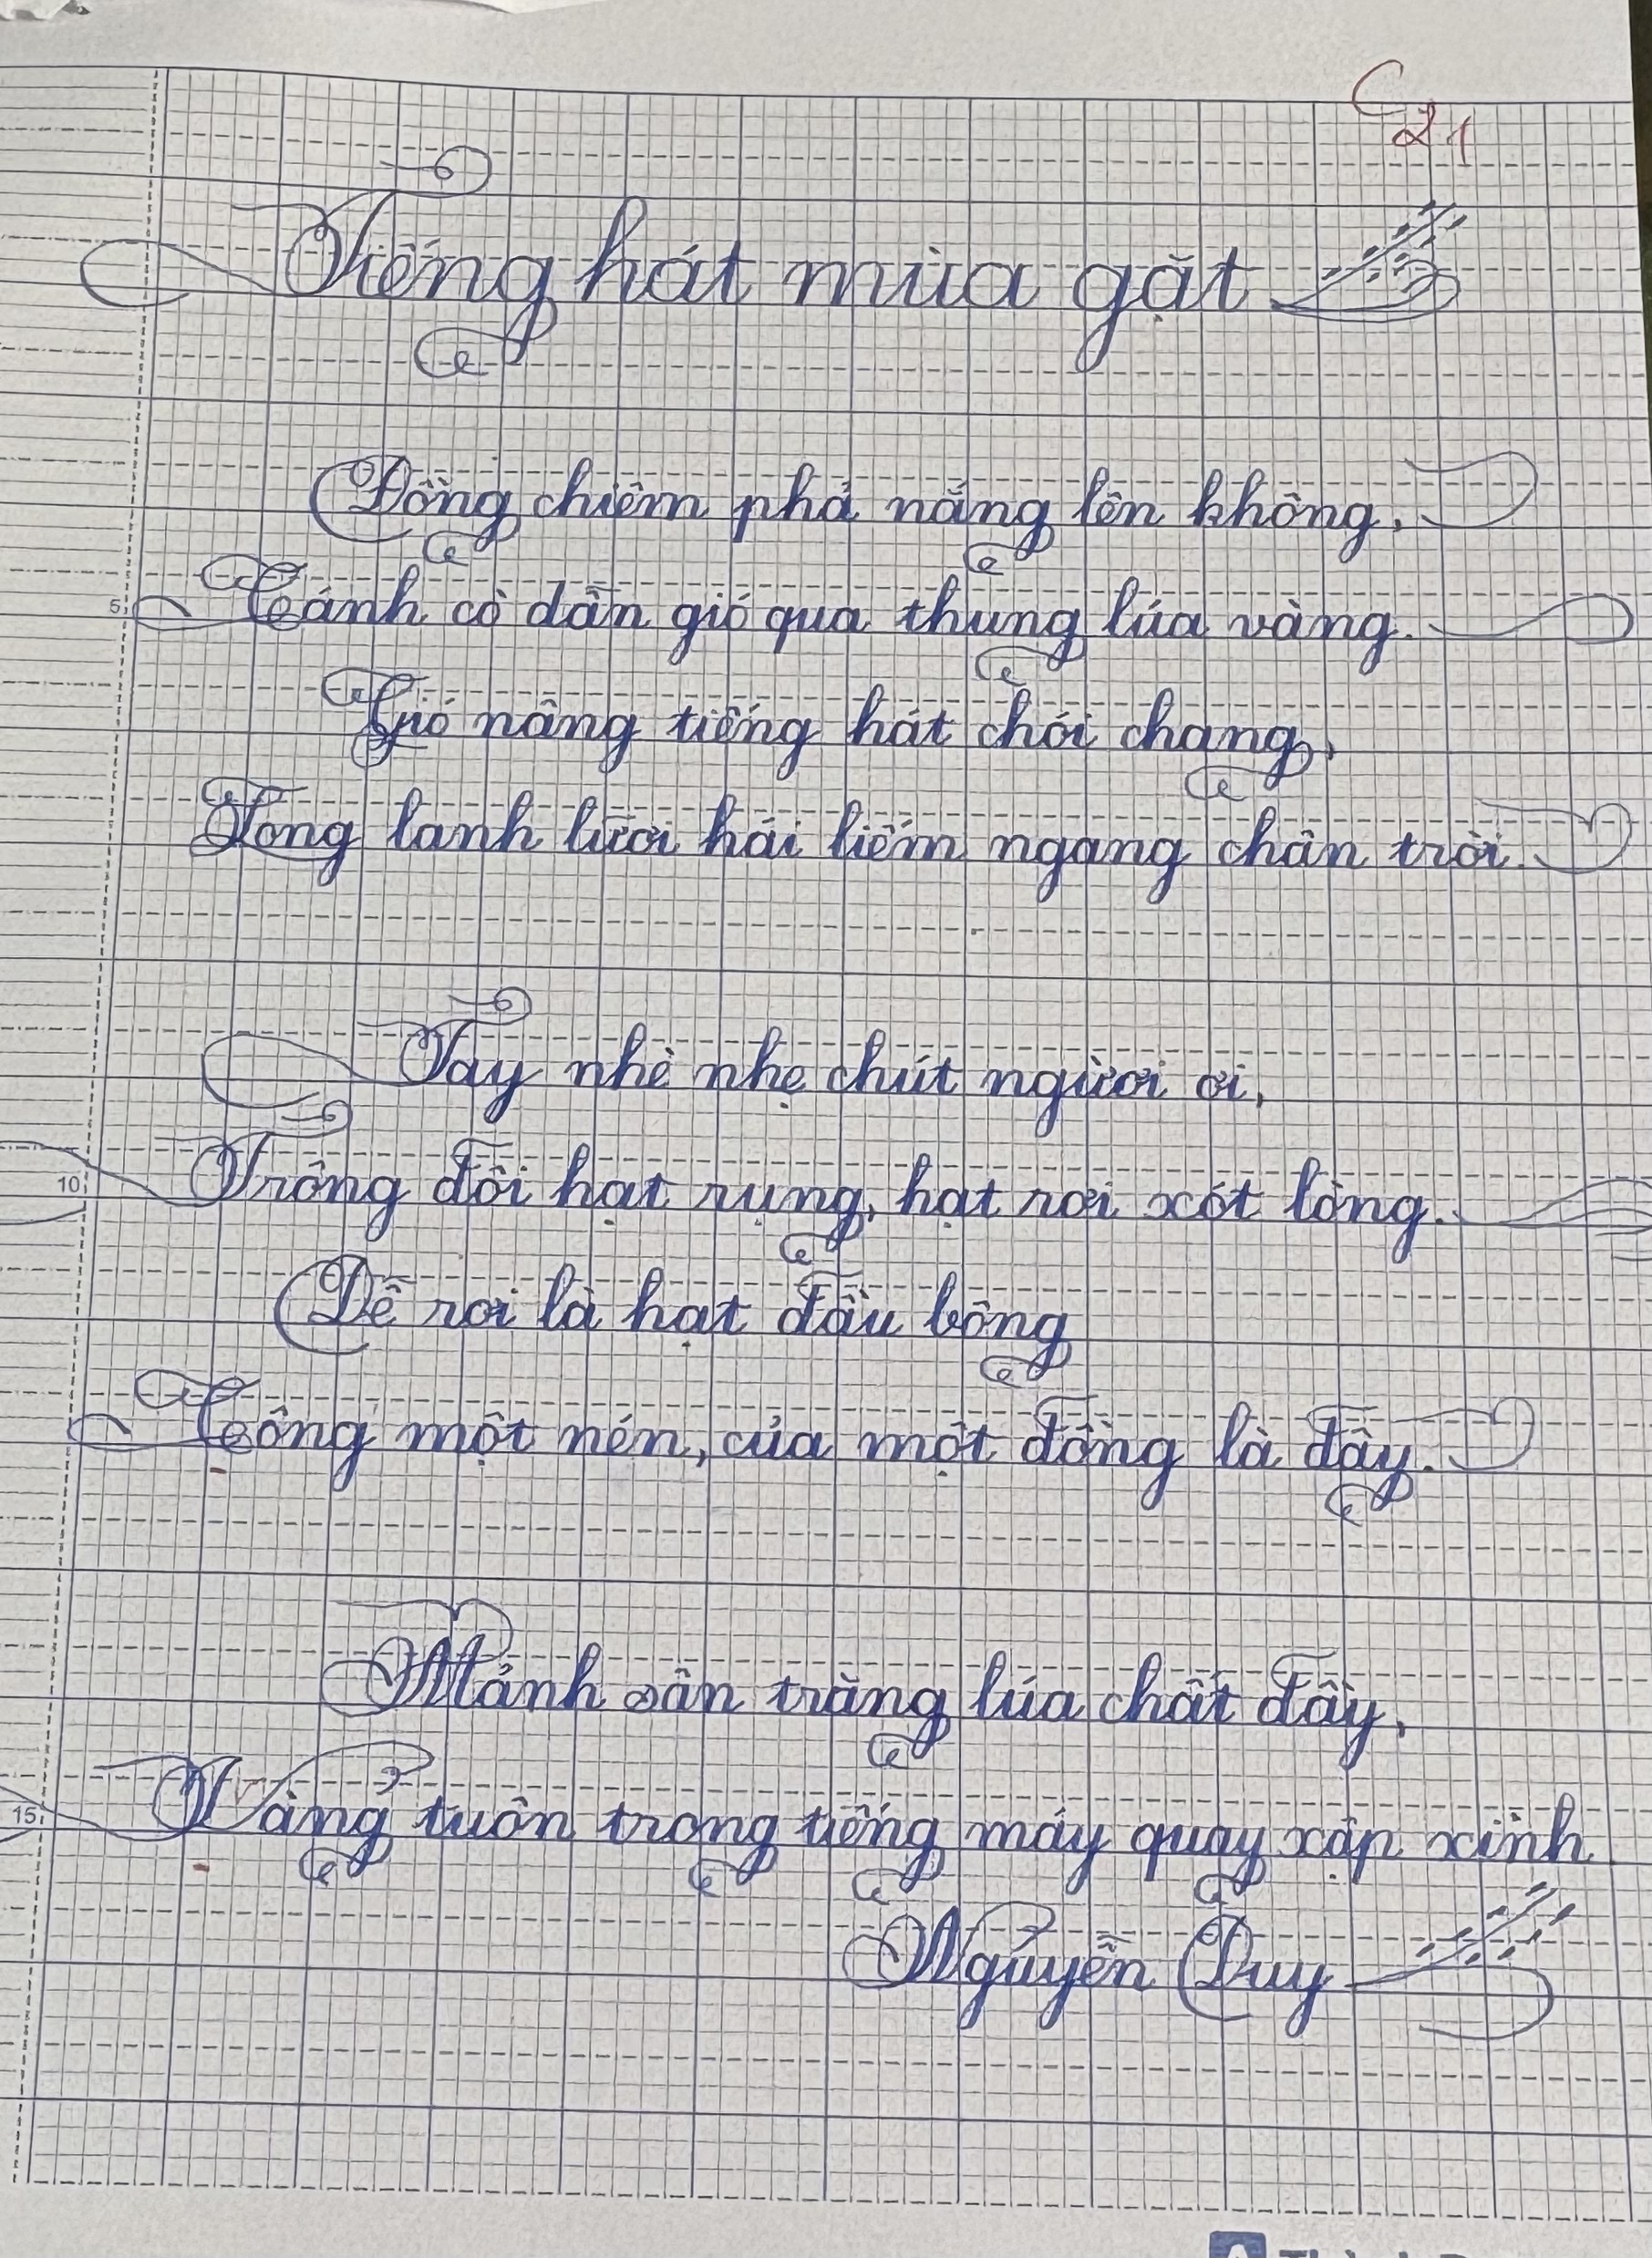 C21
Tiếng hát mùa gặt
Đồng chiêm phả nắng lên không,
Cánh cò dẫn gió qua thung lúa vàng.
5
Gió nâng tiếng hát chói chang,
Long lanh lưỡi hái liếm ngang chân trời.
Tay nhè nhẹ chút người ơi,
Trông đôi hạt rụng, hạt rơi xót lòng.
10
Dễ rơi là hạt đầu bông
Công một nén, của một đồng là đây.
Mảnh sân trăng lúa chất đầy,
Vàng tuôn trong tiếng máy quay xập xình
15
Nguyễn Duy